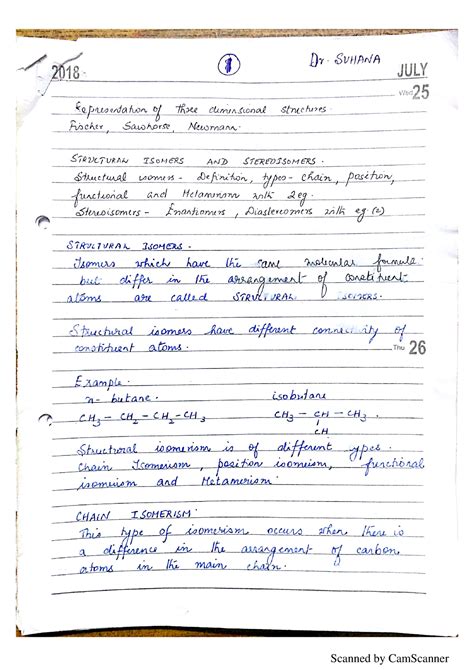 2018
1
Dr. SUHANA
JULY
Wed 25
Representation of three dimensional structures.
Fischer, Sawhorse, Newmann.
STRUCTURAL ISOMERS AND STEREOISOMERS.
Structural isomers - Definition, types - chain, position,
functional and Metamerism with 2 eg.
Stereoisomers - Enantiomers, Diastereomers with eg (2)
STRUCTURAL ISOMERS.
Isomers which have the same molecular formula
but differ in the arrangement of constituent
atoms are called STRUCTURAL ISOMERS.
Structural isomers have different connectivity of
constituent atoms.
Thu 26
Example.
n- butane. isobutane
CH3 - CH2 - CH2 - CH3 CH3 - CH - CH3.
CH
Structural isomerism is of different types.
Chain Isomerism, position isomeism, functional
isomeism and Metamerism.
CHAIN ISOMERISM.
This type of isomerism occurs when there is
a difference in the arrangement of carbon
atoms in the main chain.
Scanned by CamScanner